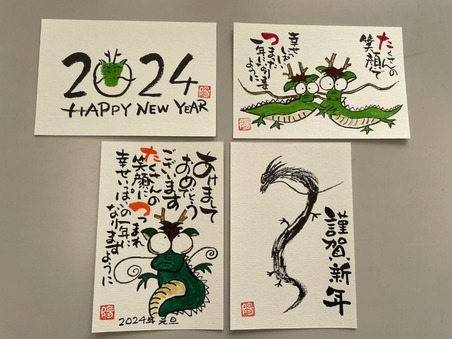 2024
HAPPY NEW YEAR
たくさんの
笑顔で
幸せの
いっぱい
つまった
一年になります
ように
あけまして
おめでとう
ございます
たくさんの
笑顔に
つつまれ
幸せいっぱいの一年に
なりますように
2024年 元旦
謹賀新年